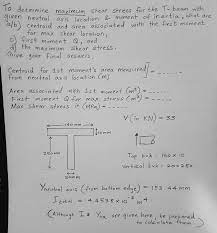 To determine maximum shear stress for the T-beam with
given neutral axis location & moment of inertia, what are
a/b) Centroid and area associated with the first moment
for max shear location,
c) first moment Q, and
d) the maximum shear stress.
Give your final answers
Centroid for 1st moment's area measured
from neutral axis location (m)
Area associated with 1st moment (m²) =
First moment Q for max stress (m³) =
Max shear stress is (MPa) =
V (in kN) = 35
200mm
20mm
Top bxh : 150 x 10
Vertical bxh : 20 x 200
Yneutral axis (from bottom edge) = 153.44 mm
(although I & YNA are given here, be prepared
to calculate them)